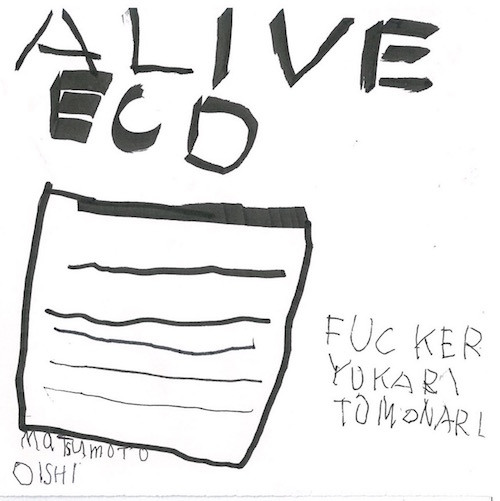 ALIVE
ECD
FUCKER
YUKARI
TOMONARI
MATSUMOTO
OISHI